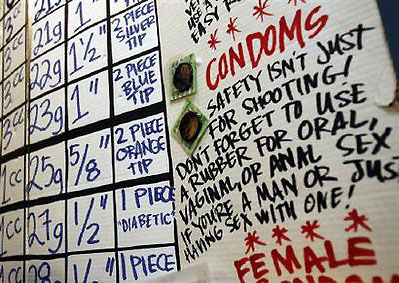 EASY
21g 1"
2 PIECE
SILVER
TIP
3cc 22g 1½"
2 PIECE
BLUE
TIP
3cc 23g 1"
1cc 25g 5/8"
2 PIECE
ORANGE
TIP
1cc 27g ½"
1 PIECE
"DIABETIC"
1cc 28g ½"
1 PIECE
* * *
CONDOMS
SAFETY ISN'T JUST
FOR SHOOTING!
DON'T FORGET TO USE
A RUBBER FOR ORAL,
VAGINAL, OR ANAL SEX
IF YOU'RE A MAN OR JUST
HAVING SEX WITH ONE!
* * * *
FEMALE
CONDOMS